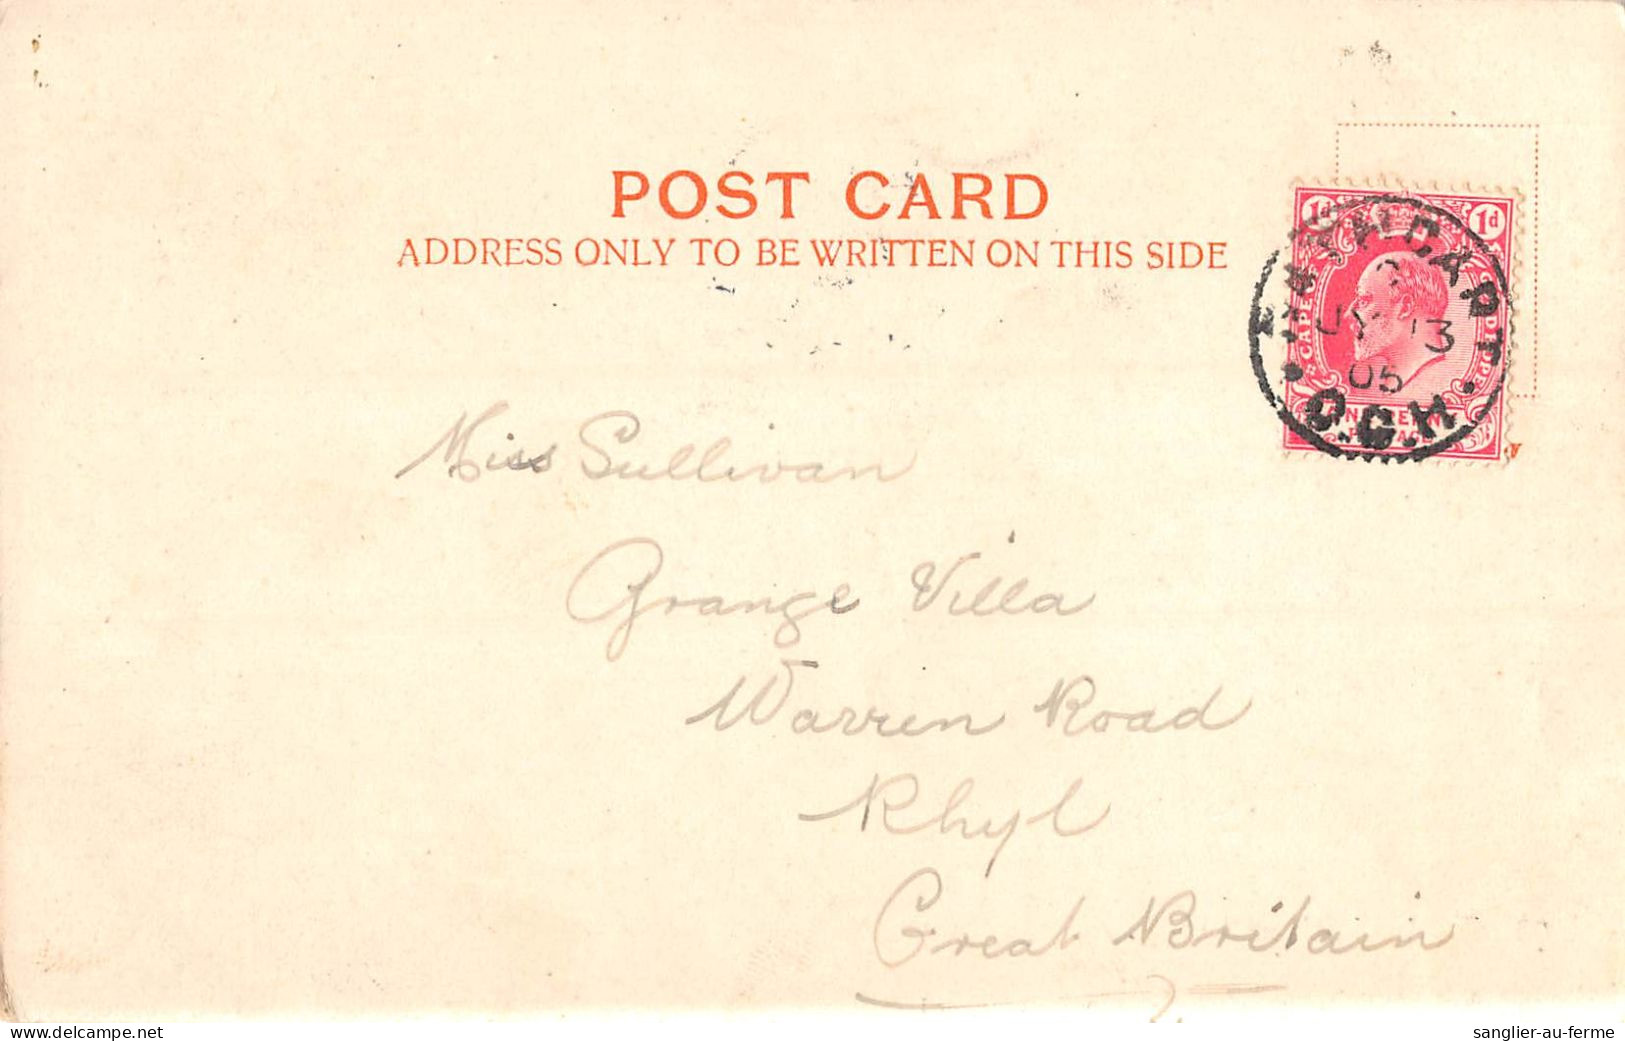 POST CARD
ADDRESS ONLY TO BE WRITTEN ON THIS SIDE
1d 1d
CAPE
JY 13
05
C.G.H.
Miss Sullivan
Grange Villa
Warren Road
Rhyl
Great Britain
www.delcampe.net
sanglier-au-ferme